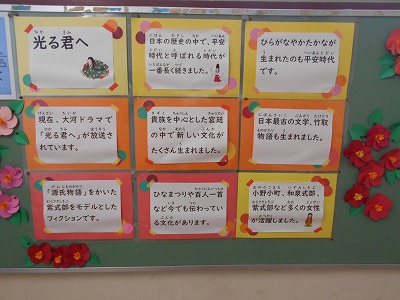 光る君へ
現在、大河ドラマで
「光る君へ」が放送さ
れています。
「源氏物語」をかいた
紫式部をモデルとした
フィクションです。
日本の歴史の中で、平安
時代と呼ばれる時代が
一番長く続きました。
貴族を中心とした宮廷
の中で新しい文化が
たくさん生まれました。
ひなまつりや百人一首
など今でも伝わってい
る文化があります。
ひらがなやかたかなが
生まれたのも平安時代
です。
日本最古の文学、竹取
物語も生まれました。
小野小町、和泉式部、
紫式部など多くの女性
が活躍しました。